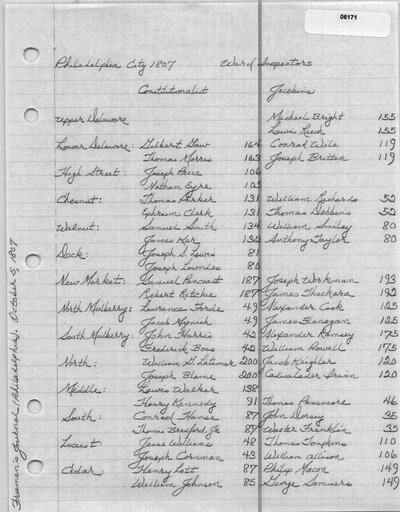 06171
Philadelphia City 1807 Ward Inspectors
Constitutionalist Jacobins
Upper Delaware Michael Bright 155
Lewis Leech 155
Lower Delaware: Gilbert Gaw 164 Conrad Wile 119
Thomas Morris 163 Joseph Britten 119
High Street: Joseph Price 106
Nathan Eyre 105
Chesnut: Thomas Parker 131 William 52
Ephraim Clark 131 Thomas Dobbins 52
Walnut: Samuel Smith 134 William Smiley 80
James Ker 132 Anthony Taylor 80
Dock: Joseph S Lewis 81
Joseph Lowndes 80
New Market: Samuel Pancoast 187 Joseph Workman 193
Robert Ritchie 187 James Thackara 192
North Mulberry: Lawrence 49 Alexander Cook 125
Jacob 49 James Flanegan 125
South Mulberry: John Harris 42 Alexander Ramsey 175
Frederick Boss 42 William Rowell 175
North: William G. Latimer 200 Jacob Keighler 120
Joseph Blame 200 Cadwalader 120
Middle: Lewis Walker 138
Henry Kennedy 91 Thomas Passmore 46
South: Conrad Hanse 87 John Dorsey 35
Thomas Bradford, Jr. 87 Walter Franklin 35
Locust: Jesse Williams 48 Thomas Tompkins 110
Joseph Corsman 43 William Allison 106
Cedar Henry Lott 87 Philip Macon 149
William Johnson 85 George Sommers 149
Freeman's Journal (Philadelphia). October 5, 1807